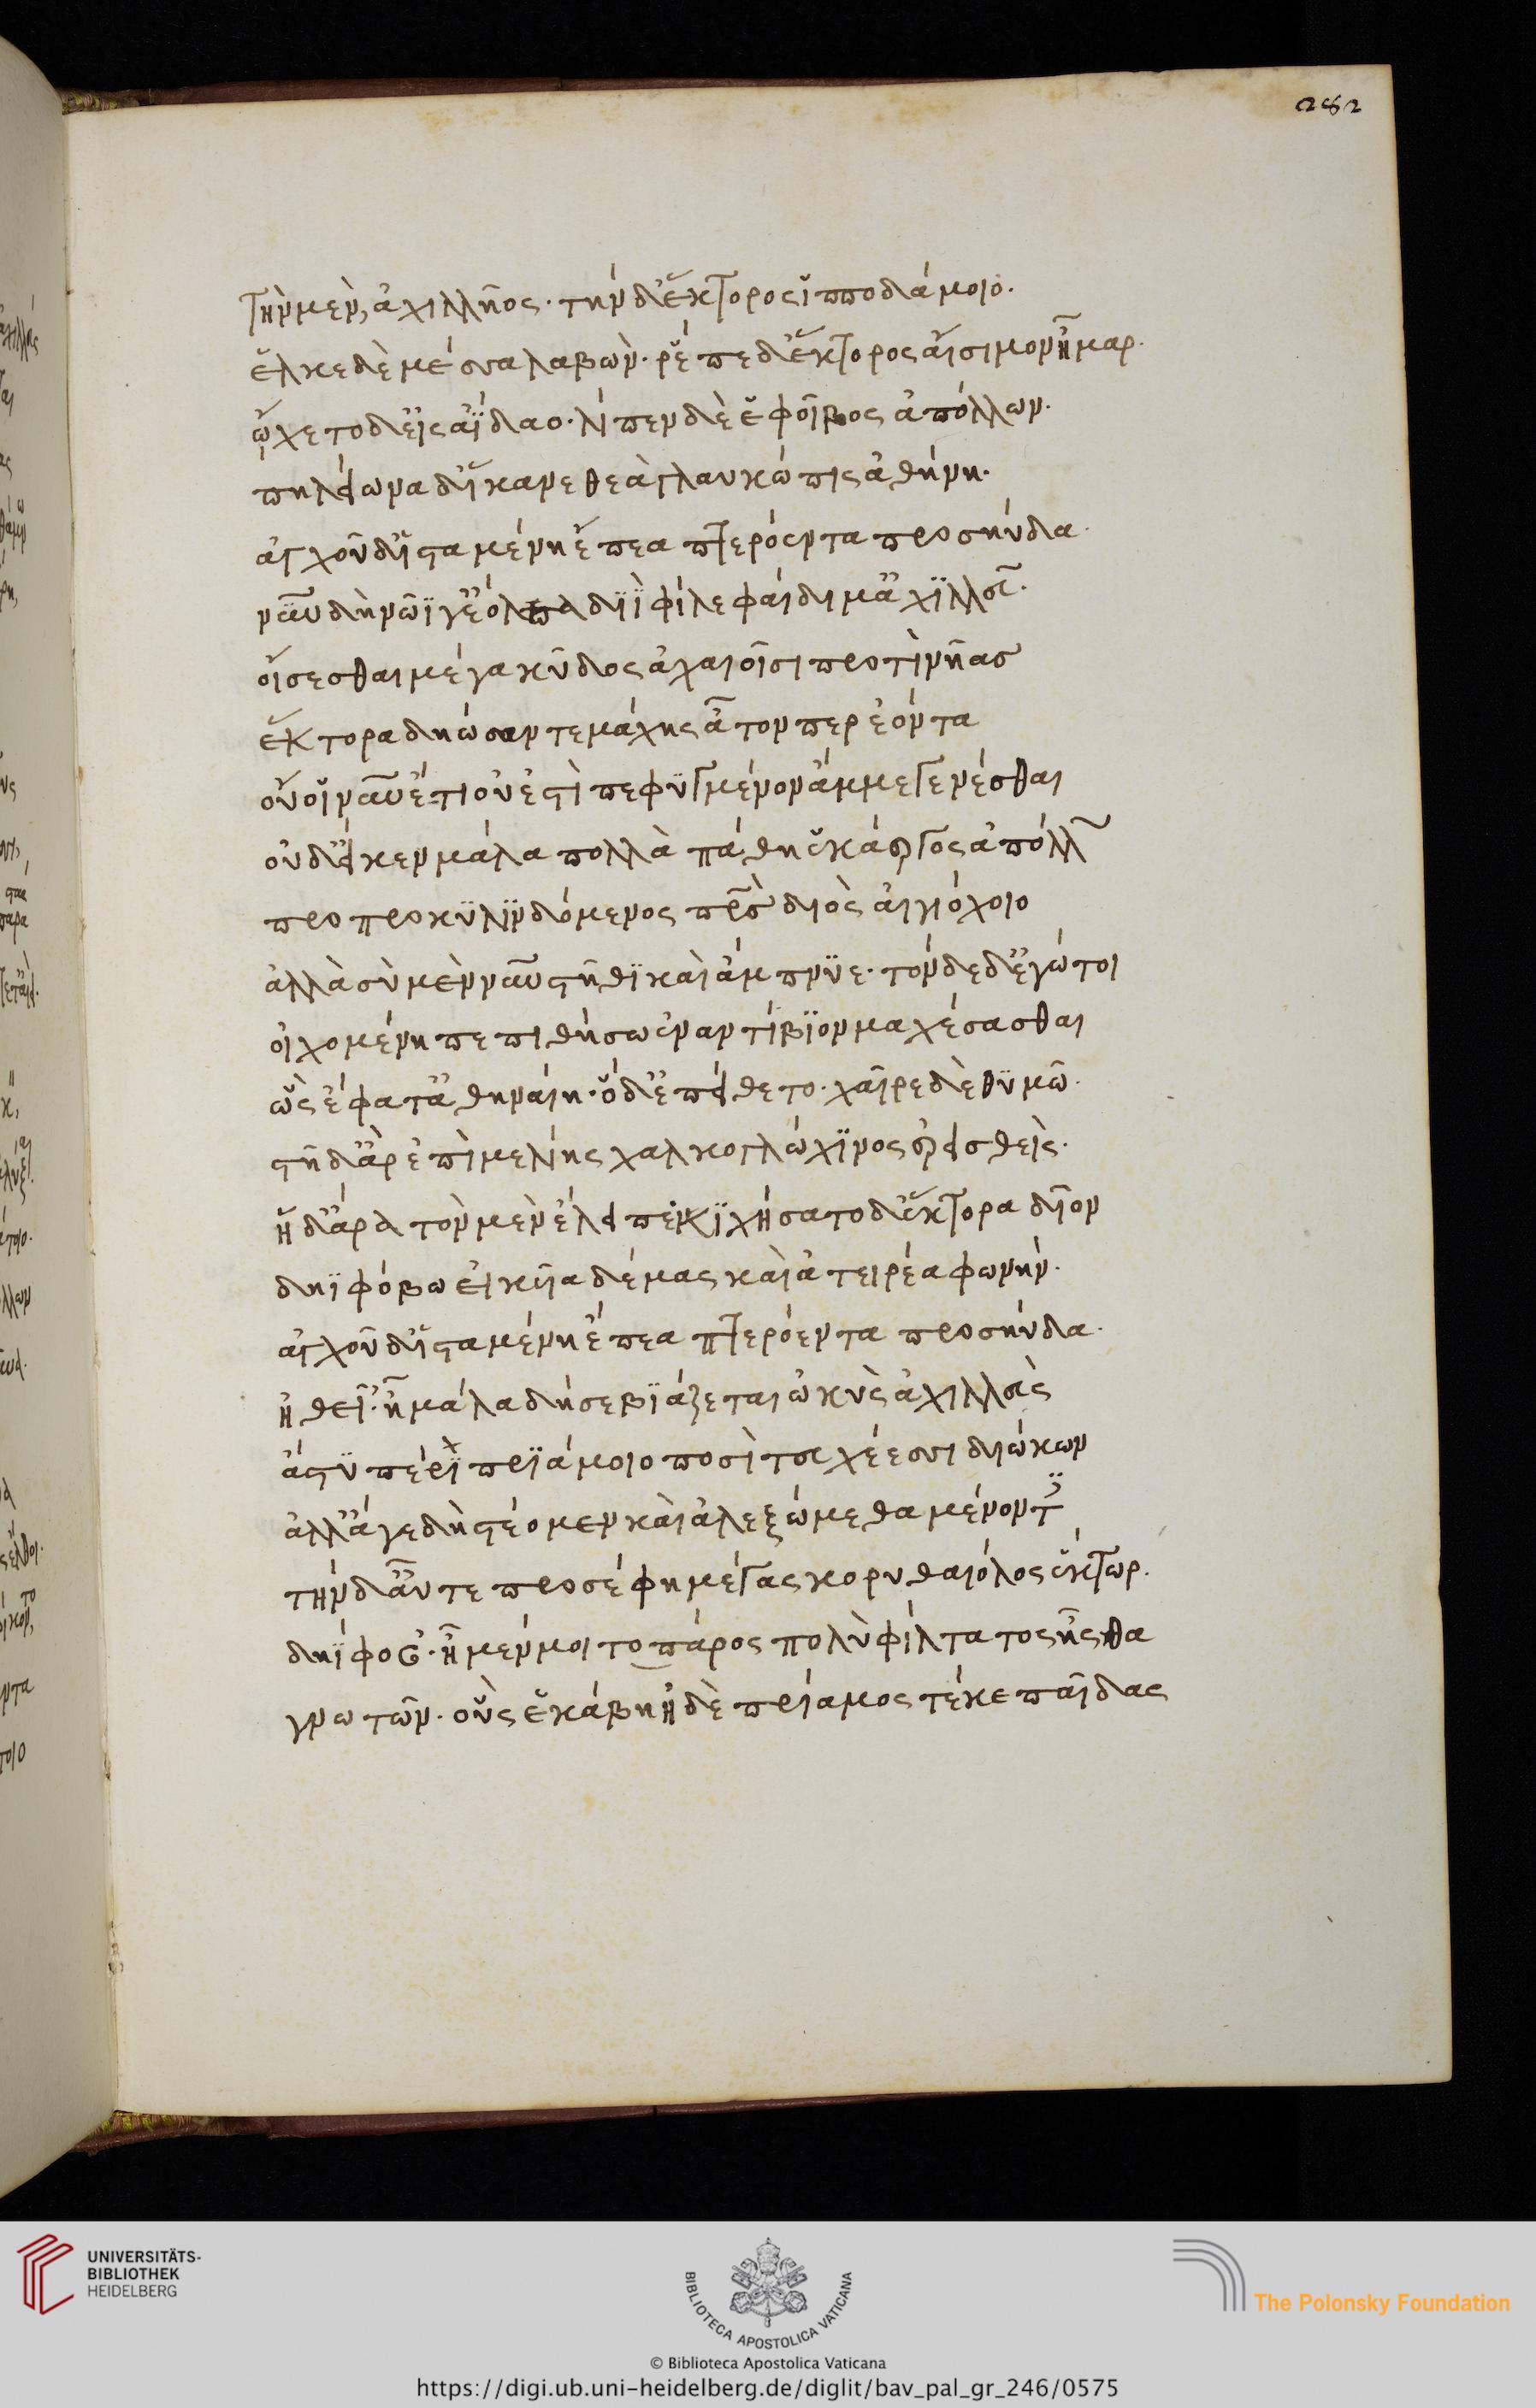 282
τὴν μὲν, ἀχιλλῆος· τὴν δ᾽ ἕκτορος ἱπποδάμοιο·
ἕλκε δὲ μέσσα λαβών· ῥέπε δ᾽ ἕκτορος αἴσιμον ἦμαρ·
ᾤχετο δ᾽ εἰς ἀΐδαο· λίπεν δὲ ἑ φοῖβος ἀπόλλων·
πηλείωνα δ᾽ ἵκανε θεὰ γλαυκώπις ἀθήνη·
ἀγχοῦ δ᾽ ἱσταμένη ἔπεα πτερόεντα προσηύδα·
νῦν δὴ νῶϊ γ᾽ ἔολπα διῒ φίλε φαίδιμ᾽ ἀχιλλεῦ·
οἴσεσθαι μέγα κῦδος ἀχαιοῖσι προτὶ νῆας
ἕκτορα δηώσαντε μάχης ἆτον περ ἐόντα
οὔ οἱ νῦν ἔτι οὐ ἐστὶ πεφυγμένον ἄμμε γενέσθαι
οὐδ᾽ εἴ κεν μάλα πολλὰ πάθη ἑκάεργος ἀπόλλων
προπροκυλινδόμενος πρὸς διὸς αἰγιόχοιο
ἀλλὰ σὺ μὲν νῦν στῆθι καὶ ἄμπνυε· τόνδε δ᾽ ἐγώ τοι
οἰχομένη πεπιθήσω ἐναντίβιον μαχέσασθαι
ὣς ἔφατ᾽ ἀθηναίη· ὁ δ᾽ ἐπείθετο· χαῖρε δὲ θυμῶ·
στῆ δ᾽ ἄρ ἐπὶ μελίης χαλκογλώχινος ἐρεισθεὶς·
ἡ δ᾽ ἄρα τὸν μὲν ἔλειπε κιχήσατο δ᾽ ἕκτορα δῖον
δηϊφόβω εἰκυῖα δέμας καὶ ἀτειρέα φωνήν·
ἀγχοῦ δ᾽ ἱσταμένη ἔπεα πτερόεντα προσηύδα·
ἠθεῖ᾽· ἦ μάλα δή σε βιάζεται ὠκὺς ἀχιλλεὺς
ἄστυ πέρι πριάμοιο ποσὶ ταχέεσσι διώκων
ἀλλ᾽ ἄγε δὴ στέομεν καὶ ἀλεξώμεθα μένοντες
τὴν δ᾽ αὖτε προσέφη μέγας κορυθαιόλος ἕκτωρ·
δηΐφοβ᾽· ἦ μέν μοι τοπάρος πολὺ φίλτατος ἦσθα
γνωτῶν· οὓς ἑκάβη ἠδὲ πρίαμος τέκε παῖδας
UNIVERSITÄTS-
BIBLIOTHEK
HEIDELBERG
BIBLIOTECA APOSTOLICA VATICANA
The Polonsky Foundation
© Biblioteca Apostolica Vaticana
https://digi.ub.uni-heidelberg.de/diglit/bav_pal_gr_246/0575